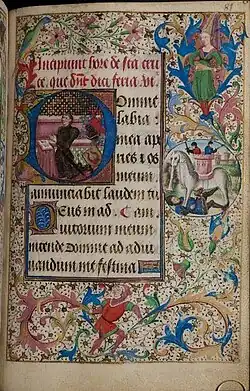 Incipiunt hore de sca cru
ce. que dnt dici feria .vi.
Domine
labia
mea ape
ries et os
meum
annunciabit laudem tu
Deus in ad
iutorium meum
intende Domine ad adiu
uandum me festina